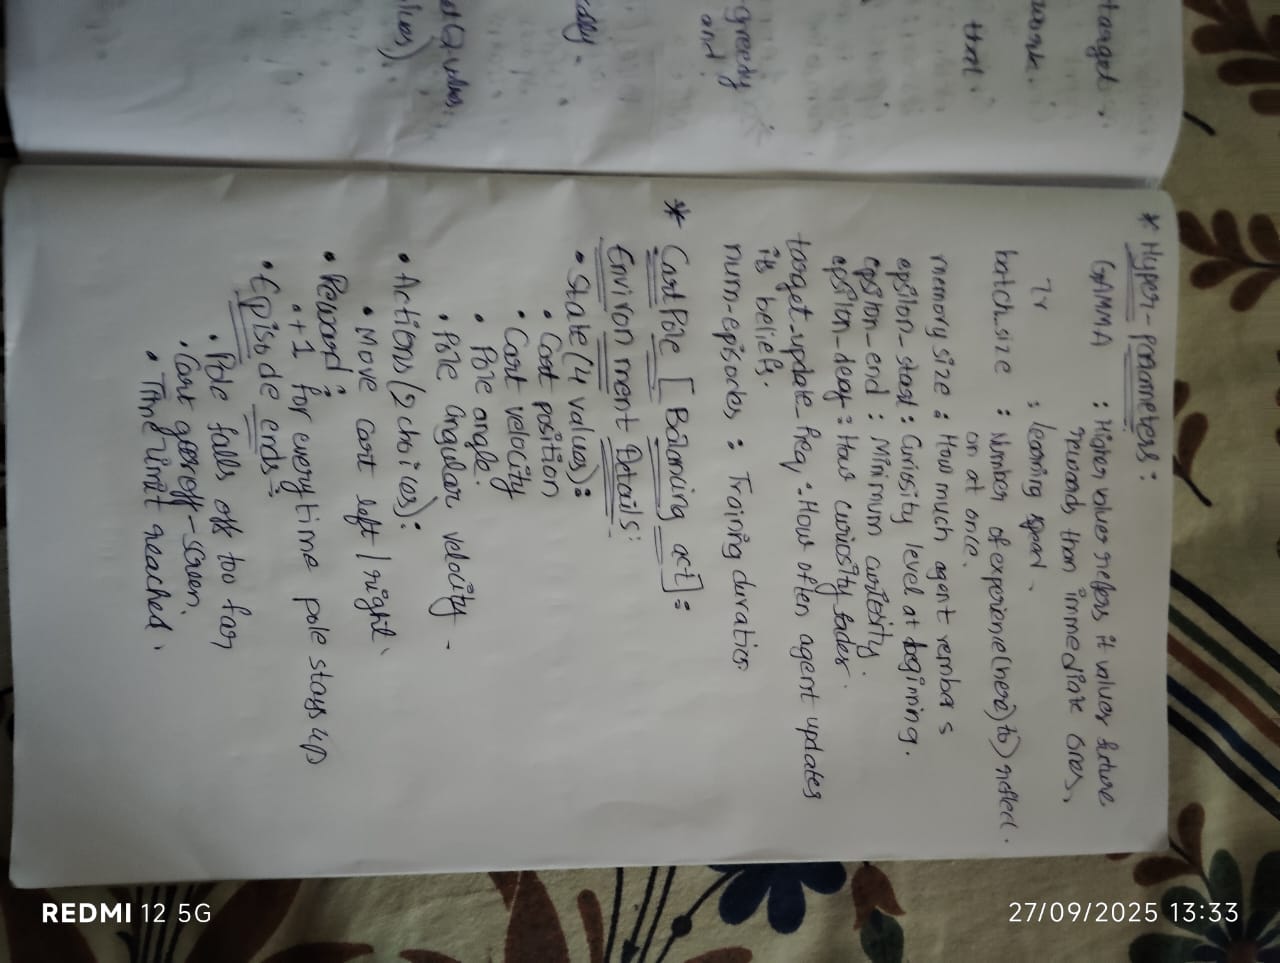 target.
work.
that
greedy
and
Q values,
* Hyper-parameters:
GAMMA : Higher values it values future
rewards than immediate ones,
lr : learning
batch_size : Number of experience(here) to) reflect.
on at once.
memory size : How much agent rembers
epsilon_start : Curiosity level at begining.
epsilon_end : Minimum
epsilon_deay : How curiosity fades.
target_update_freq : How often agent updates
its beliefs.
num-episodes, : Training duration
* CartPole [Balancing act]:
Environment Details:
• State(4 values):
• Cart position
• Cart velocity
• Pole angle
• Pole angular velocity.
• Actions (2 choices):
• Move cart left/right.
• Reward:
• +1 for every time pole stays up
• Episode ends:
• Pole falls off too far
• Cart goes off-screen.
• Time-limit reached.
REDMI 12 5G
27/09/2025 13:33